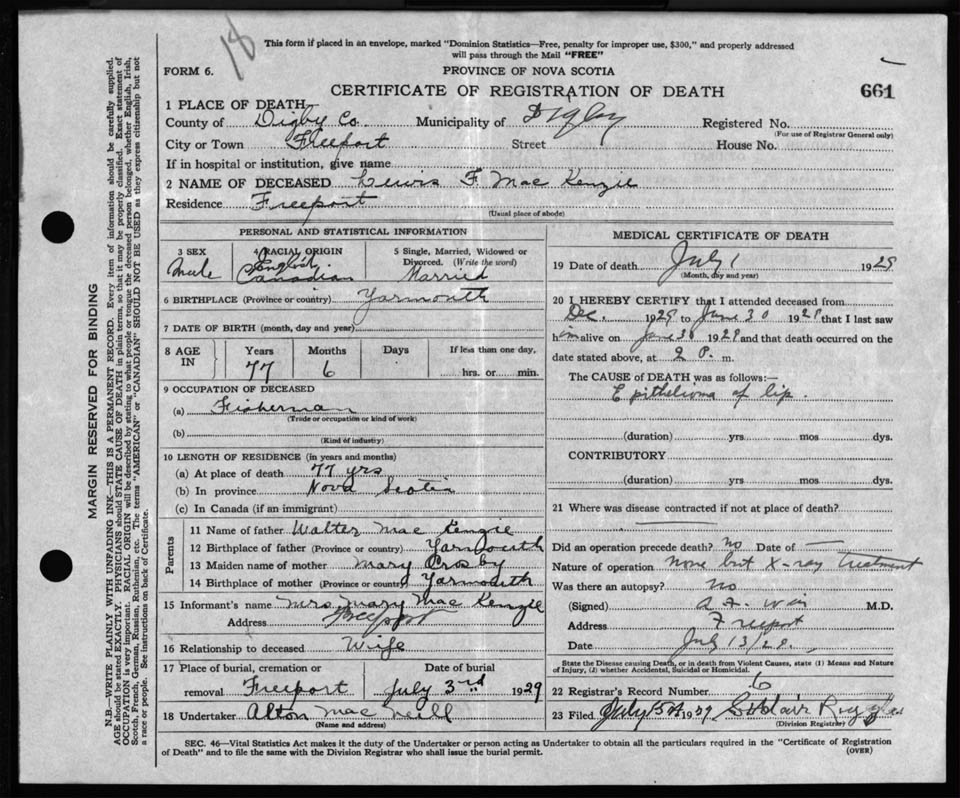 18
This form if placed in an envelope, marked "Dominion Statistics—Free, penalty for improper use, $300," and properly addressed
will pass through the Mail "FREE"
FORM 6.
PROVINCE OF NOVA SCOTIA
CERTIFICATE OF REGISTRATION OF DEATH
661
1 PLACE OF DEATH
County of Digby Co. Municipality of Digby Registered No.
(For use of Registrar General only)
City or Town Freeport Street House No.
If in hospital or institution, give name
2 NAME OF DECEASED Lewis F. Mac Kenzie
Residence Freeport
(Usual place of abode)
PERSONAL AND STATISTICAL INFORMATION
3 SEX Male
4 RACIAL ORIGIN English Canadian
5 Single, Married, Widowed or Divorced. (Write the word) Married
6 BIRTHPLACE (Province or country) Yarmouth
7 DATE OF BIRTH (month, day and year)
8 AGE IN Years 77 Months 6 Days If less than one day, hrs. or min.
9 OCCUPATION OF DECEASED
(a) Fisherman
(Trade or occupation or kind of work)
(b)
(Kind of industry)
10 LENGTH OF RESIDENCE (in years and months)
(a) At place of death 77 yrs
(b) In province Nova Scotia
(c) In Canada (if an immigrant)
Parents
11 Name of father Walter Mac Kenzie
12 Birthplace of father (Province or country) Yarmouth
13 Maiden name of mother Mary Crosby
14 Birthplace of mother (Province or country) Yarmouth
15 Informant's name Mrs. Mary Mac Kenzie
Address Freeport
16 Relationship to deceased Wife
17 Place of burial, cremation or removal Freeport Date of burial July 3rd 1929
18 Undertaker Alton Mac Neill
(Name and address)
MEDICAL CERTIFICATE OF DEATH
19 Date of death July 1 1929
(Month, day and year)
20 I HEREBY CERTIFY that I attended deceased from
Dec. 1929 to June 30 1929 that I last saw
him alive on June 30 1929 and that death occurred on the
date stated above, at 2 P. m.
The CAUSE OF DEATH was as follows:—
Epithelioma of lip.
(duration) yrs. mos. dys.
CONTRIBUTORY
(duration) yrs. mos. dys.
21 Where was disease contracted if not at place of death?
Did an operation precede death? No Date of
Nature of operation None but X-ray treatment
Was there an autopsy? No
(Signed) M.D.
Address Freeport
Date July 13/29.
State the Disease causing Death, or in death from Violent Causes, state (1) Means and Nature
of Injury, (2) whether Accidental, Suicidal or Homicidal.
22 Registrar's Record Number 6
23 Filed July 1929
(Division Registrar)
SEC. 46—Vital Statistics Act makes it the duty of the Undertaker or person acting as Undertaker to obtain all the particulars required in the "Certificate of Registration
of Death" and to file the same with the Division Registrar who shall issue the burial permit.
(OVER)
MARGIN RESERVED FOR BINDING
N.B.—WRITE PLAINLY WITH UNFADING INK—THIS IS A PERMANENT RECORD. Every item of information should be carefully supplied.
AGE should be stated EXACTLY. PHYSICIANS should STATE CAUSE OF DEATH in plain terms, so that it may be properly classified. Exact statement of
OCCUPATION is very important. RACIAL ORIGIN will be described by stating to what people or tongue the deceased person belonged, whether English, Irish,
Scotch, French, German, Russian, Ruthenian, etc. The terms "AMERICAN" or "CANADIAN" SHOULD NOT BE USED as they express citizenship but not
a race or people. See instructions on back of Certificate.